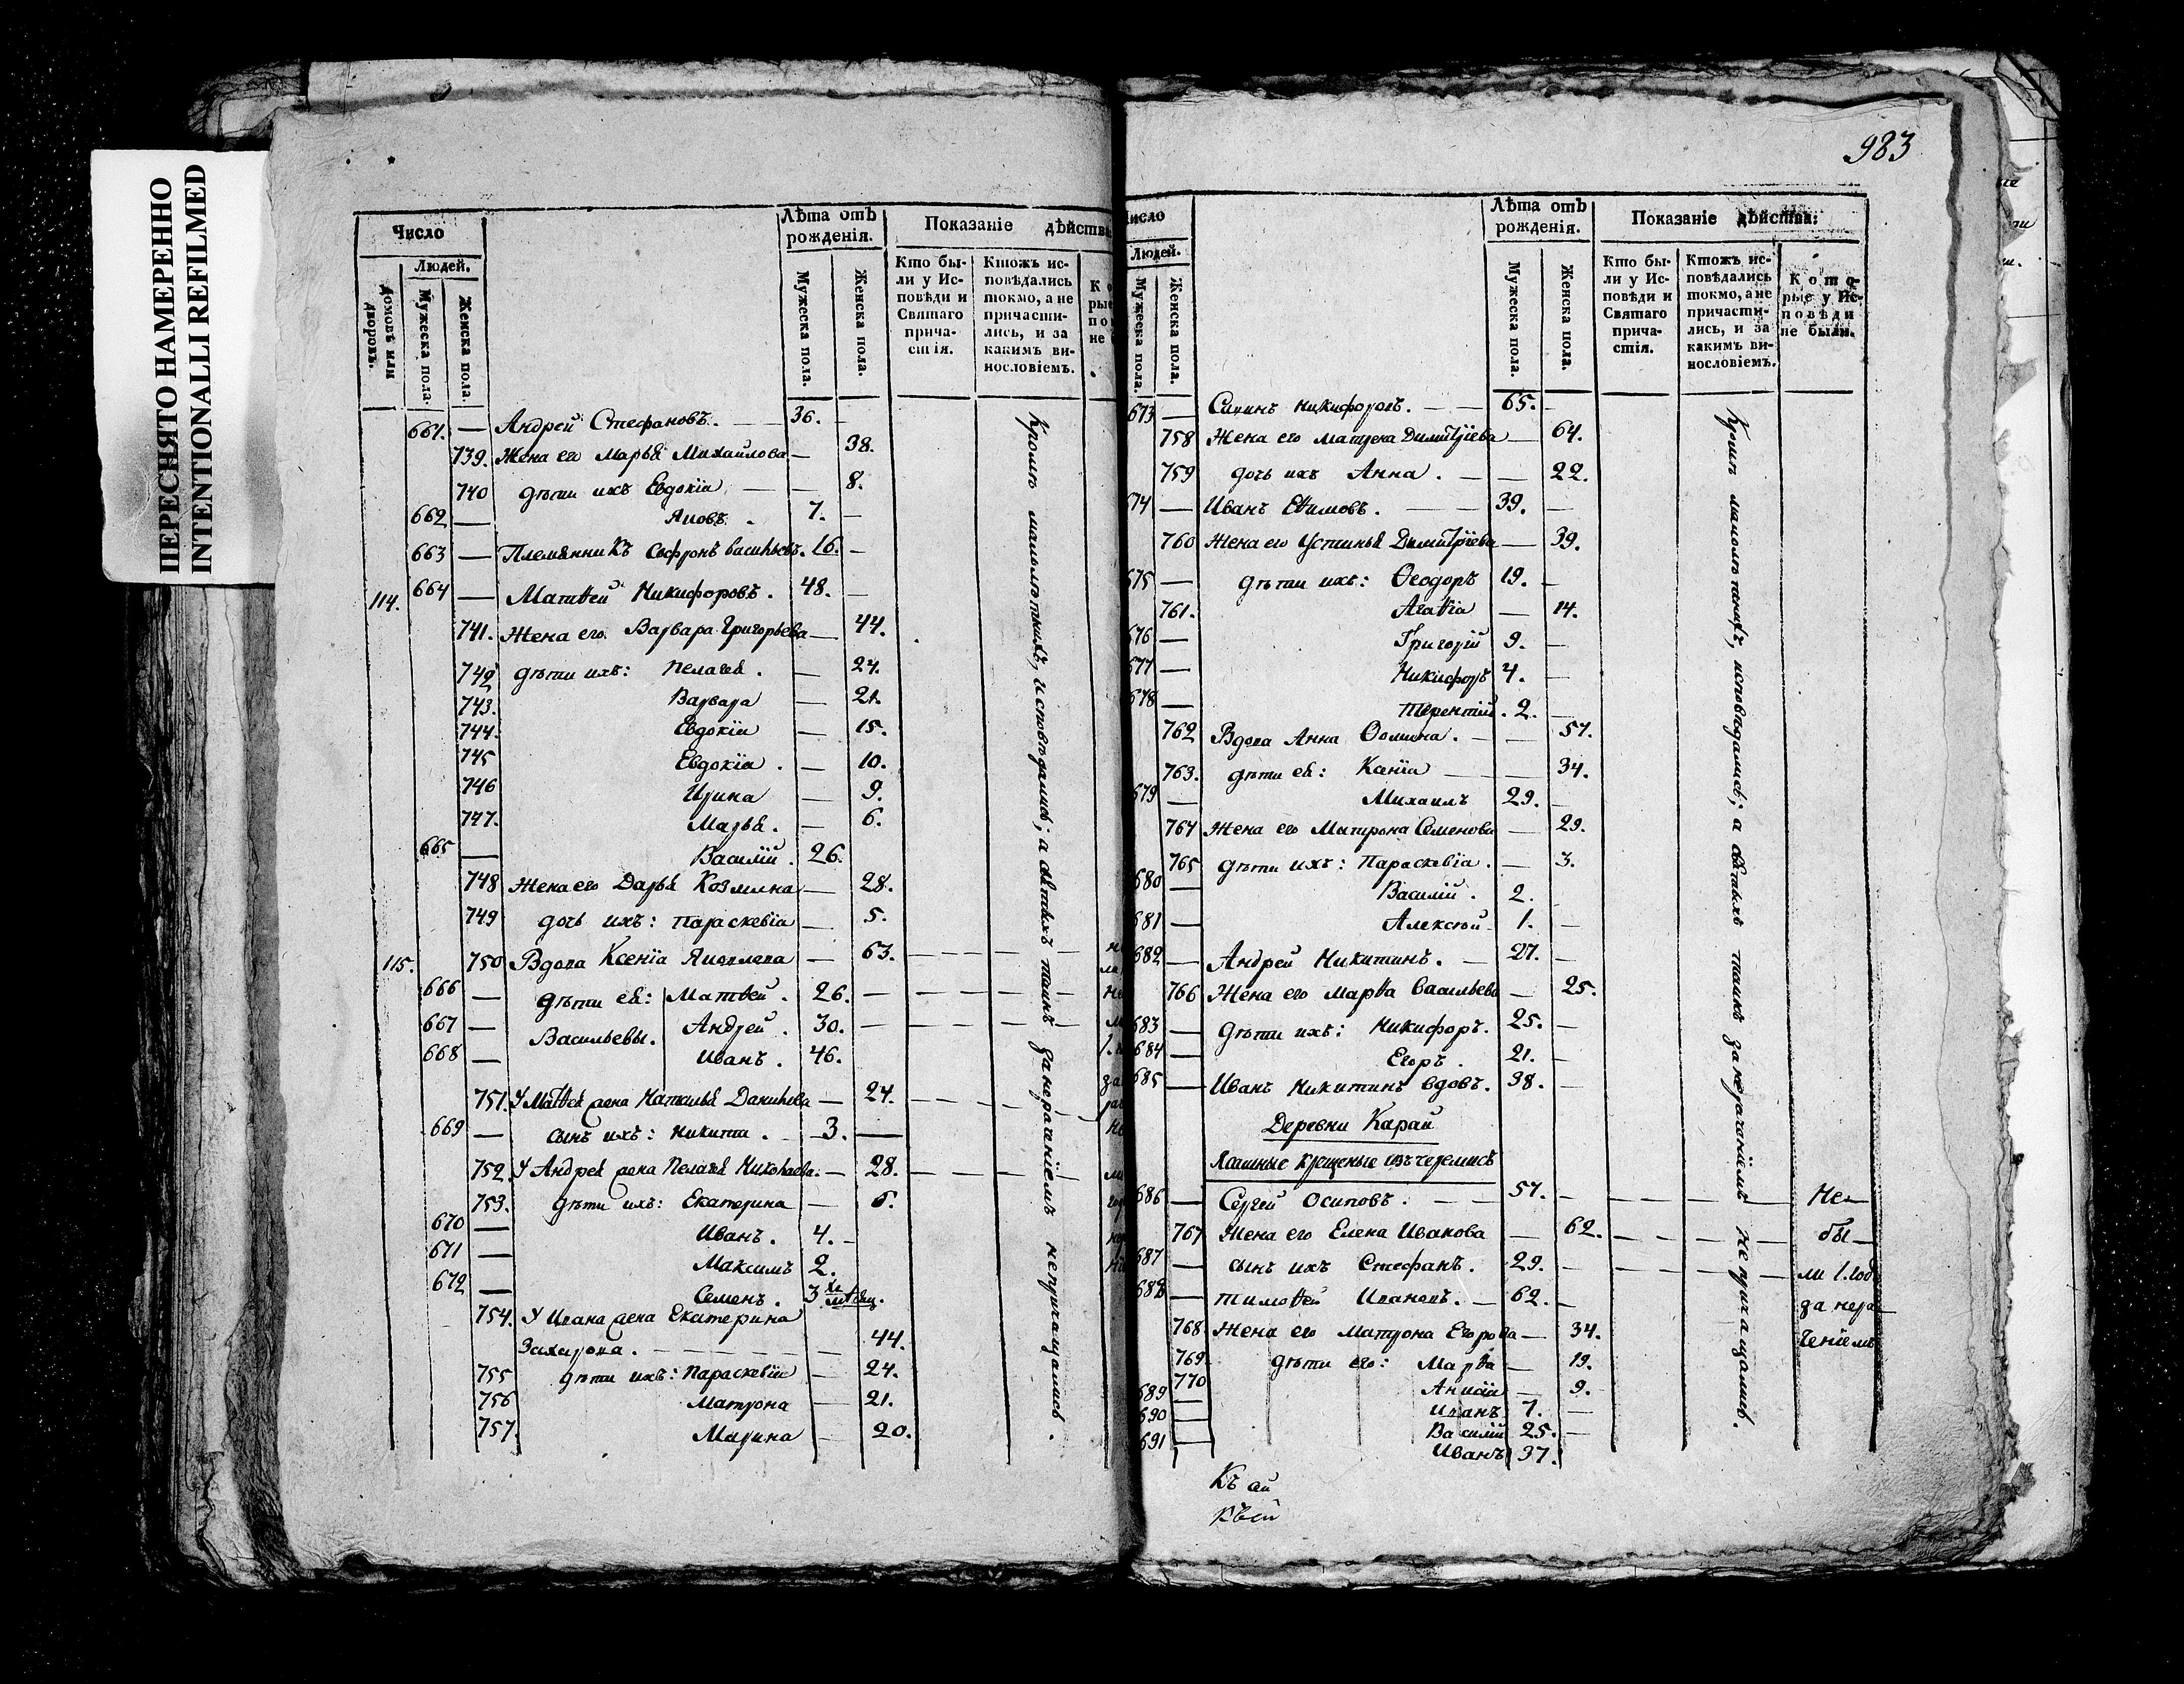 ПЕРЕСНЯТО НАМЕРЕННО
INTENTIONALLI REFILMED
Число
Людей.
Домовъ или дворовъ.
Мужеска пола.
Женска пола.
Лѣта отъ рожденія.
Мужеска пола.
Женска пола.
Показаніе дѣйства
Кто бы-
ли у Ис-
повѣди и
Святаго
прича-
стія.
Ктожъ ис-
повѣдались
токмо, а не
причасти-
лись, и за
какимъ ви-
нословіемъ.
661. — Андрей Стефановъ. — 36. —
739. Жена его Марья Михайлова — 38.
740 дѣти ихъ Евдокія — — 8.
662 — Яковъ. 7. —
663 — Племянникъ Софронъ Васильевъ. 16. —
114. 664 — Матѳей Никифоровъ. 48. —
741. Жена его Варвара Григорьева — 44.
742 дѣти ихъ: Пелагея. — 24.
743. Варвара — 21.
744. Евдокіи — 15.
745 Евдокіа. — 10.
746 Ирина — 9.
747. Марья. — 6.
665 — Василій. 26.
748 Жена его Дарья Козмина — 28.
749 дочь ихъ: Параскевіа — 5.
115. 750 Вдова Ксеніа Яковлева — 63. — — — —
666 — дѣти ея: Матѳей. 26. — — — —
667 — Васильевы. Андрей. 30. — — — —
668 — Иванъ. 46.
751. У Матѳея жена Наталья Данилова — 24. — — — —
669 — сынъ ихъ: Никита. — 3. —
752. У Андрея жена Пелагея Николаева. — 28. — — —
753. дѣти ихъ: Екатерина — 6.
670 — Иванъ. 4. —
671 — Максимъ 2.
672 — Семенъ. 3 хъ мѣсяц.
754. У Ивана жена Екатерина
Захарова. — — — — — 44.
755 дѣти ихъ: Параскевіи — 24.
756 Матрона — 21.
757. Марина — 20.
Кромѣ малолѣтнихъ, исповѣдались; а святыхъ таинъ за нераченіемъ непричащались.
983
Число
Людей.
Мужеска пола.
Женска пола.
Лѣта отъ рожденія.
Мужеска пола.
Женска пола.
Показаніе дѣйства:
Кто бы-
ли у Ис-
повѣди и
Святаго
прича-
стія.
Ктожъ ис-
повѣдались
токмо, а не
причасти-
лись, и за
какимъ ви-
нословіемъ.
Кото-
рые у Ис-
повѣди
не были.
673 — Никифоровъ. — — 65. —
758 Жена его Матрена Димитріева — 64.
759 дочь ихъ Анна. — — 22.
674 — Иванъ Еѳимовъ. — — 39. —
760 Жена его Устинья Димитріева — 39.
675 — дѣти ихъ: Ѳеодоръ 19. —
761. Агаѳіа — 14.
676 — Григорій 9. —
677 — Никифоръ 4. —
678 — Терентій. 2. —
762 Вдова Анна Ѳомина. — — 57.
763. дѣти ея: Ксеніа — — 34.
679 — Михаилъ 29. —
764 Жена его Матрона Семенова — 29.
765 дѣти ихъ: Параскевіа. — 3.
680 — Василій. 2. —
681 — Алексѣй 1. —
682 — Андрей Никитинъ. — 27. —
766 Жена его Марѳа Васильева — 25.
683 — дѣти ихъ: Никифоръ. 25. —
684 — Егоръ. 21. —
685 — Иванъ Никитинъ вдовъ. 38. —
Деревни Карай
Ясашные крещеные изъ черемисъ
686 — Сергей Осиповъ. — — 57. — — — — Не—
767 Жена его Елена Иванова — 62. — — — бы—
687 — сынъ ихъ Стефанъ. 29. — — — — ли 1. годъ
688 — Тимоѳей Ивановъ. — 62. — за нера—
768. Жена его Матрона Егорова — 34. ченіемъ
769. дѣти его: Марѳа — 19.
770 Анисіи — 9.
689 — Иванъ 7. —
690 — Василій 25. —
691 — Иванъ 37.
Кромѣ малолѣтнихъ, исповѣдались; а святыхъ таинъ за нераченіемъ непричащались.